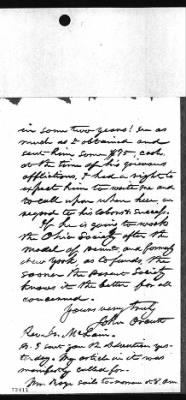 in some two years! in as
much as I obtained and
sent him some $75, cash
at the time of his grievous
afflictions, I had a right to
expect him to write me and
to call upon when here, in
regard to his labors & success.
If he is going to work
the Ohio Society after the
model of and formerly
New York as to funds, the
sooner the Parent Society
knows it the better for all
concerned.
Yours very truly
John Orcutt
Rev. Dr. McLain.
P.S. I sent you the yester-
day. My article in it was
called for.
Mrs. sails to-morrow at 8 A.M.